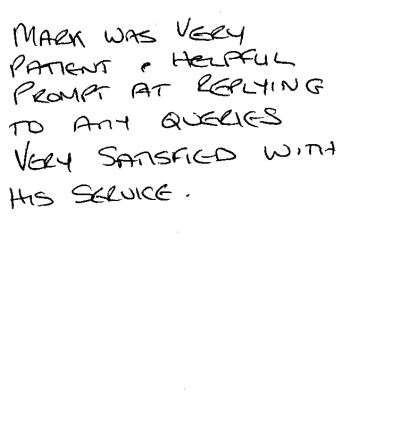 MARK WAS VERY
PATIENT & HELPFUL
PROMPT AT REPLYING
TO ANY QUERIES
VERY SATISFIED WITH
HIS SERVICE.